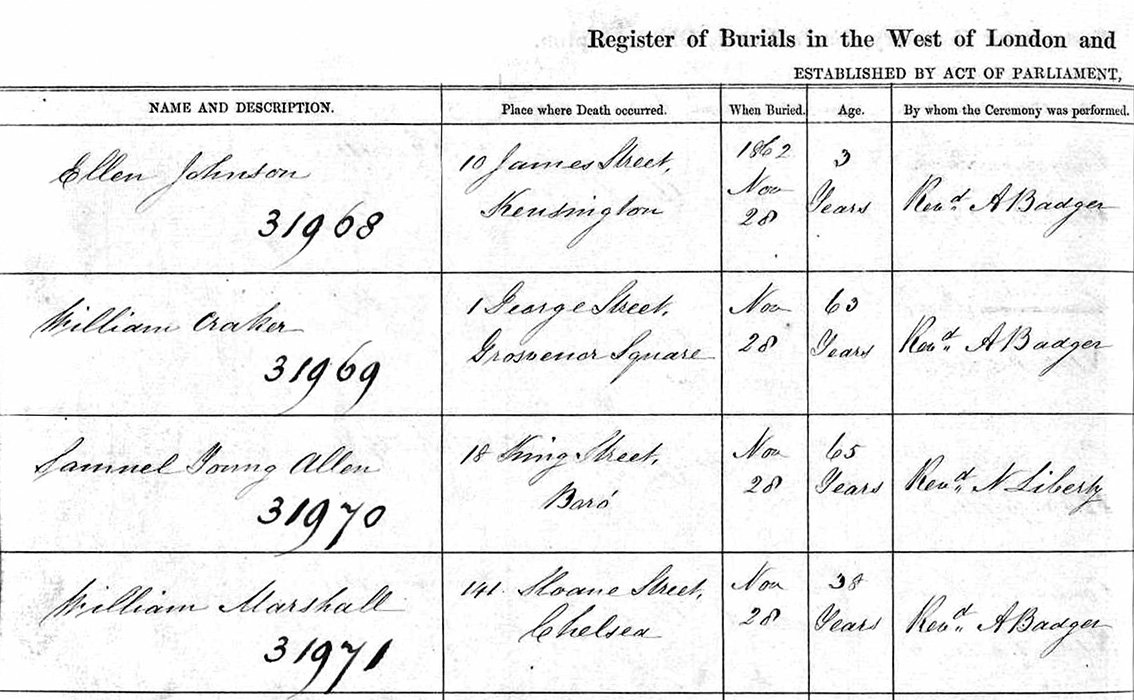 Register of Burials in the West of London and
ESTABLISHED BY ACT OF PARLIAMENT,
NAME AND DESCRIPTION. Place where Death occurred. When Buried. Age. By whom the Ceremony was performed.
Ellen Johnson
31968
10 James Street,
Kensington
1862
Nov
28
3
Years
Revd. A Badger
William Craker
31969
1 George Street,
Grosvenor Square
Nov
28
63
Years
Revd. A Badger
Samuel Young Allen
31970
18 King Street,
Boro'
Nov
28
65
Years
Revd. N Liberty
William Marshall
31971
141 Sloane Street,
Chelsea
Nov
28
38
Years
Revd. A Badger